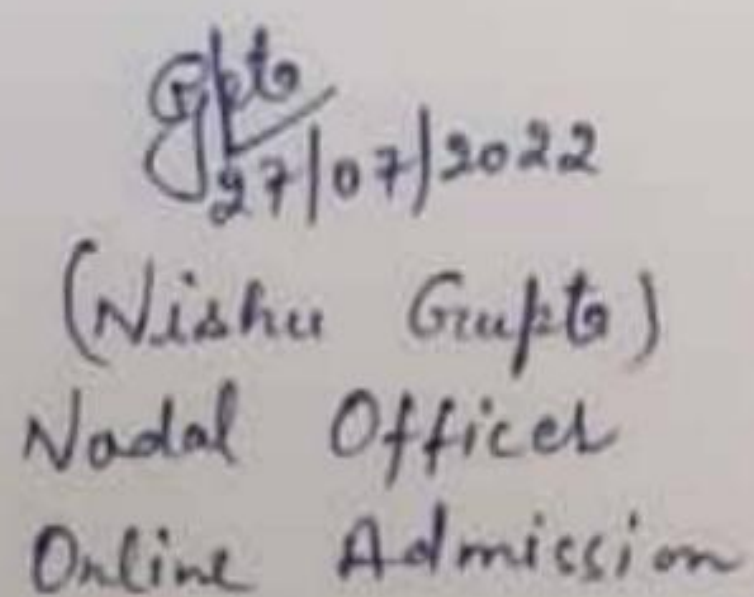 Gupta
27/07/2022
(Nishu Gupta)
Nodal Officer
Online Admission